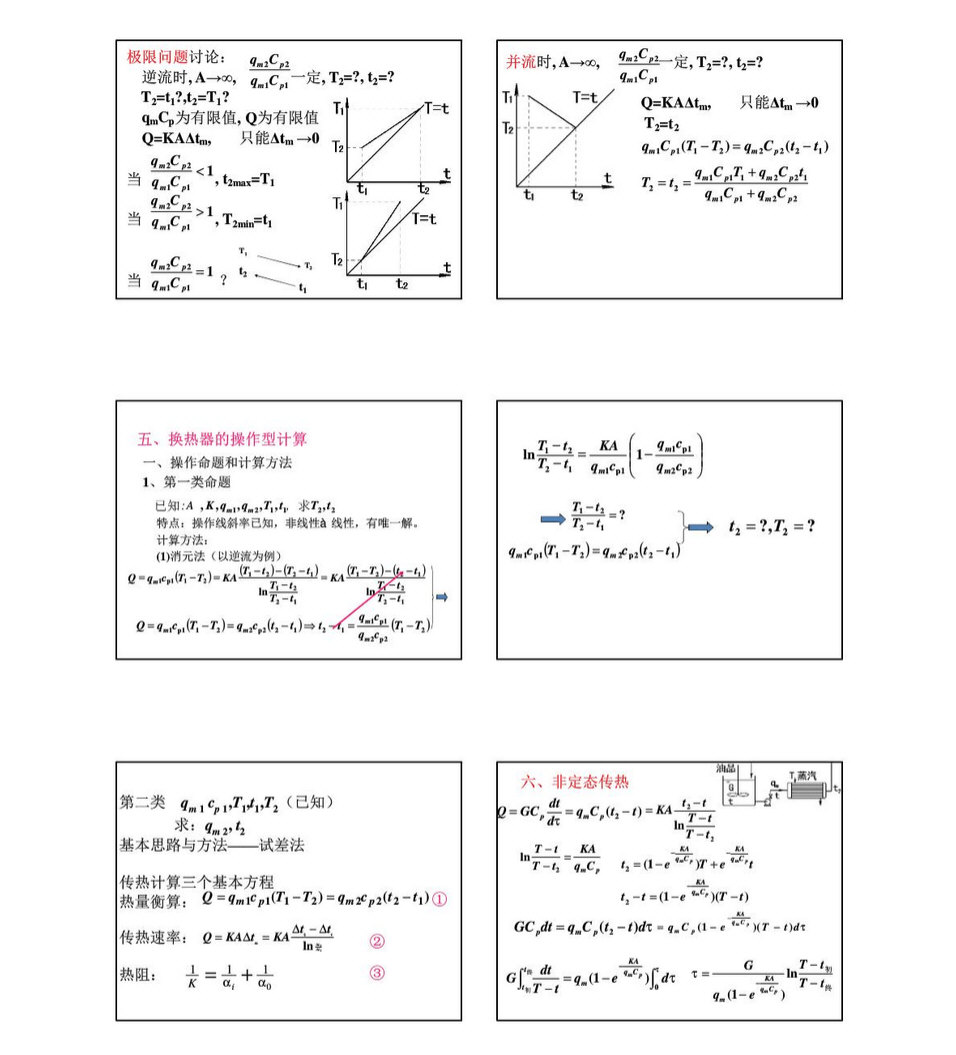 极限问题讨论: q_{m2}C_{p2}/q_{m1}C_{p1}
逆流时, A→∞, 一定, T₂=?, t₂=?
T₂=t₁?,t₂=T₁?
q_mC_p为有限值, Q为有限值
Q=KAΔt_m, 只能Δt_m→0
当 q_{m2}C_{p2}/q_{m1}C_{p1}<1, t_{2max}=T₁
当 q_{m2}C_{p2}/q_{m1}C_{p1}>1, T_{2min}=t₁
当 q_{m2}C_{p2}/q_{m1}C_{p1}=1 ?
T₁ T₂
t₂ t₁
T₁ T=t
T₂
t
t₁ t₂
T₁ T=t
T₂
t
t₁ t₂
并流时, A→∞, q_{m2}C_{p2}/q_{m1}C_{p1}一定, T₂=?, t₂=?
T₁ T=t
T₂
t
t₁ t₂
Q=KAΔt_m, 只能Δt_m→0
T₂=t₂
q_{m1}C_{p1}(T₁−T₂)=q_{m2}C_{p2}(t₂−t₁)
T₂=t₂=(q_{m1}C_{p1}T₁+q_{m2}C_{p2}t₁)/(q_{m1}C_{p1}+q_{m2}C_{p2})
五、换热器的操作型计算
一、操作命题和计算方法
1、第一类命题
已知:A ,K,q_{m1},q_{m2},T₁,t₁, 求T₂,t₂
特点：操作线斜率已知，非线性à 线性，有唯一解。
计算方法：
(1)消元法（以逆流为例）
Q=q_{m1}c_{p1}(T₁−T₂)=KA((T₁−t₂)−(T₂−t₁))/(ln((T₁−t₂)/(T₂−t₁)))=KA((T₁−T₂)−(t₂−t₁))/(ln((T₁−t₂)/(T₂−t₁)))
Q=q_{m1}c_{p1}(T₁−T₂)=q_{m2}c_{p2}(t₂−t₁)⇒t₂−t₁=(q_{m1}c_{p1})/(q_{m2}c_{p2})(T₁−T₂)
ln((T₁−t₂)/(T₂−t₁))=(KA)/(q_{m1}c_{p1})(1−(q_{m1}c_{p1})/(q_{m2}c_{p2}))
(T₁−t₂)/(T₂−t₁)=?
q_{m1}c_{p1}(T₁−T₂)=q_{m2}c_{p2}(t₂−t₁)
t₂=?,T₂=?
第二类 q_{m1}c_{p1},T₁,t₁,T₂（已知）
求: q_{m2},t₂
基本思路与方法——试差法
传热计算三个基本方程
热量衡算: Q=q_{m1}c_{p1}(T₁−T₂)=q_{m2}c_{p2}(t₂−t₁)①
传热速率: ②
热阻: 1/K=1/α_i+1/α_0 ③
六、非定态传热
油品
G
t
q_m
t
T,蒸汽
t₂
Q=GC_p(dt/dτ)=q_mC_p(t₂−t)=KA(t₂−t)/(ln((T−t)/(T−t₂)))
ln((T−t)/(T−t₂))=(KA)/(q_mC_p) t₂=(1−e^{−KA/(q_mC_p)})T+e^{−KA/(q_mC_p)}t
t₂−t=(1−e^{−KA/(q_mC_p)})(T−t)
GC_pdt=q_mC_p(t₂−t)dτ=q_mC_p(1−e^{−KA/(q_mC_p)})(T−t)dτ
G∫_{t初}^{t终}dt/(T−t)=q_m(1−e^{−KA/(q_mC_p)})∫₀^τdτ τ=G/(q_m(1−e^{−KA/(q_mC_p)}))ln((T−t初)/(T−t终))